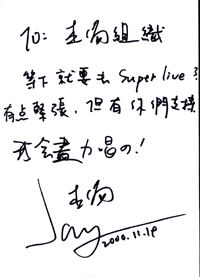 TO: 圭內組織
等下就要去 Super live 了
有点緊張，但有你們支撐
我会盡力唱の！
圭內
Jay
2000.11.19